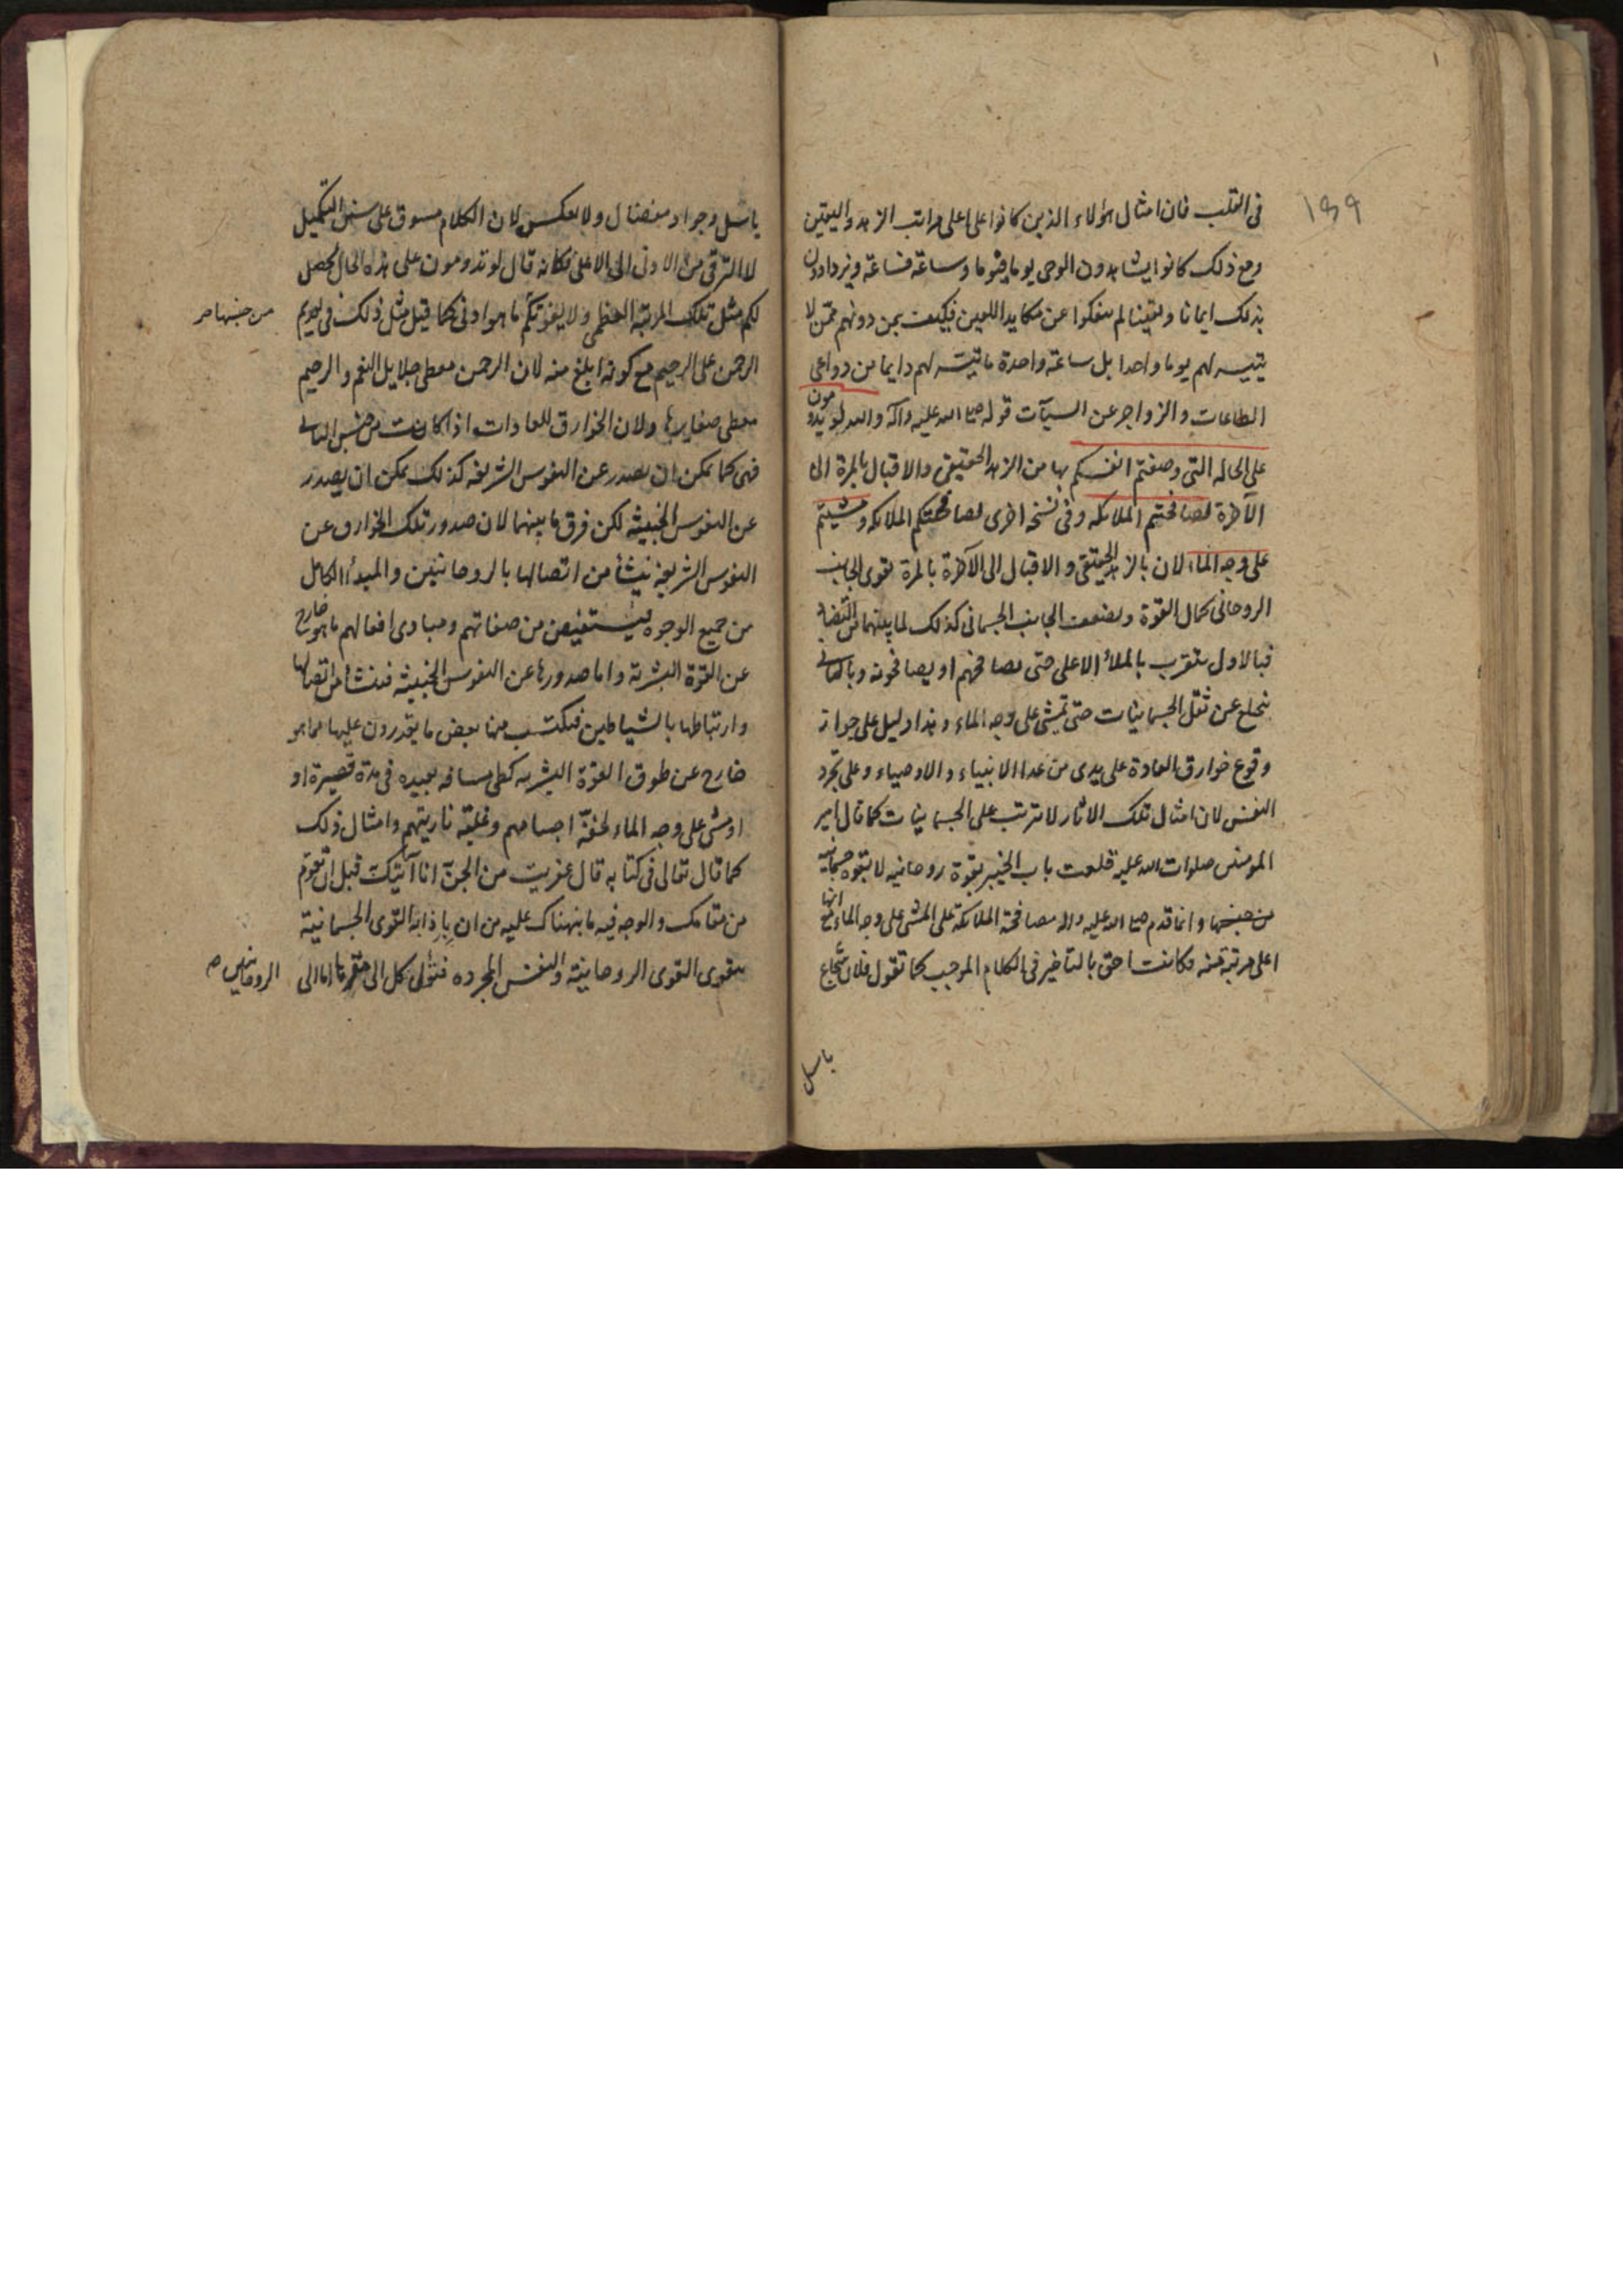 ١٣٩
في القلب فان امثال هؤلاء الذين كانوا على اعلى مراتب الزهد واليقين
ومع ذلك كانوا يشاهدون الوحى يوما فيوما وساعة فساعة ويزدادون
بذلك ايمانا ويقينا لم ينفكوا عن مكايد اللعين فكيف بمن دونهم ممن لا
يتيسر لهم يوما واحدا بل ساعة واحدة ما تيسر لهم دايما من دواعى
الطاعات والزواجر عن السيآت قوله صلى الله عليه وآله والله لو تدومون
على الحاله التى وصفتم انفسكم بها من الزهد الحقيقى والاقبال بالمرة الى
الآخرة لصافحتم الملائكه وفى نسخه اخرى لصافحتكم الملائكه ومشيتم
على وجه الماء لان بالزهد الحقيقى والاقبال الى الآخرة بالمرة تقوى الجانب
الروحانى كمال القوة ويضعف الجانب الجسمانى كذلك لما بينهما من التضاد
فبالاول يتقرب بالملأ الاعلى حتى يصافحهم او يصافحونه وبالثانى
ينخلع عن ثقل الجسمانيات حتى يمشى على وجه الماء وهذا دليل على جواز
وقوع خوارق العادة على يدى من عدا الانبياء والاوصياء وعلى تجرد
النفس لان امثال تلك الاثار لا تترتب على الجسمانيات كما قال امير
المومنين صلوات الله عليه قلعت باب الخيبر بقوة روحانيه لا بقوه جسمانيه
من جنسها وانما قدم صلى الله عليه واله مصافحة الملائكة على المشى على وجه الماء مع انها
اعلى مرتبة منه وكانت احق بالتاخير فى الكلام الموجب كما تقول فلان شجاع
باسل
باسل وجواد مفضال ولا يعكس لان الكلام مسوق على سنن التكميل
لا الترقى من الادنى الى الاعلى فكانه قال لو تدومون على هذه الحال يحصل
لكم مثل تلك المرتبة العظمى ولا يفوتكم ما هو ادنى كما قيل مثل ذلك فى تقديم
من جنسها صح
الرحمن على الرحيم مع كونه ابلغ منه لان الرحمن معطى جلايل النعم والرحيم
معطى صغايرها ولان الخوارق للعادات اذا كانت من جنس الثانى
فهى كما يمكن ان يصدر عن النفوس الشريفه كذلك يمكن ان يصدر
عن النفوس الخبيثه لكن فرق ما بينهما لان صدور تلك الخوارق عن
النفوس الشريفة ينشأ من اتصالها بالروحانيين والمبدأ الكامل
من جميع الوجوه فيستفيض من صفاتهم ومبادى افعالهم ما هو خارج
عن القوة البشرية واما صدورها عن النفوس الخبيثه فينشأ من اتصالها
وارتباطها بالشياطين فيكتسب منها بعض ما يقدرون عليها مما هو
خارج عن طوق القوة البشريه كطى مسافه بعيده فى مدة قصيرة او
او مشى على وجه الماء لخفة اجسامهم وغلبة ناريتهم وامثال ذلك
كما قال تعالى فى كتابه قال عفريت من الجن انا آتيك قبل ان تقوم
من مقامك والوجه فيه ما نبهناك عليه من ان باذابة القوى الجسمانية
يتقوى القوى الروحانية والنفس المجرده فتؤل كل الى مقرها اما الى
الروحانيين صح